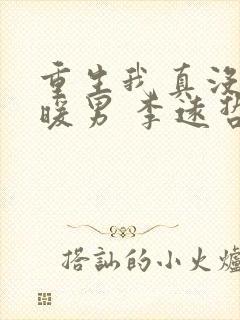 重生我真没
暖男 李逸哲
搭訕的小火爐